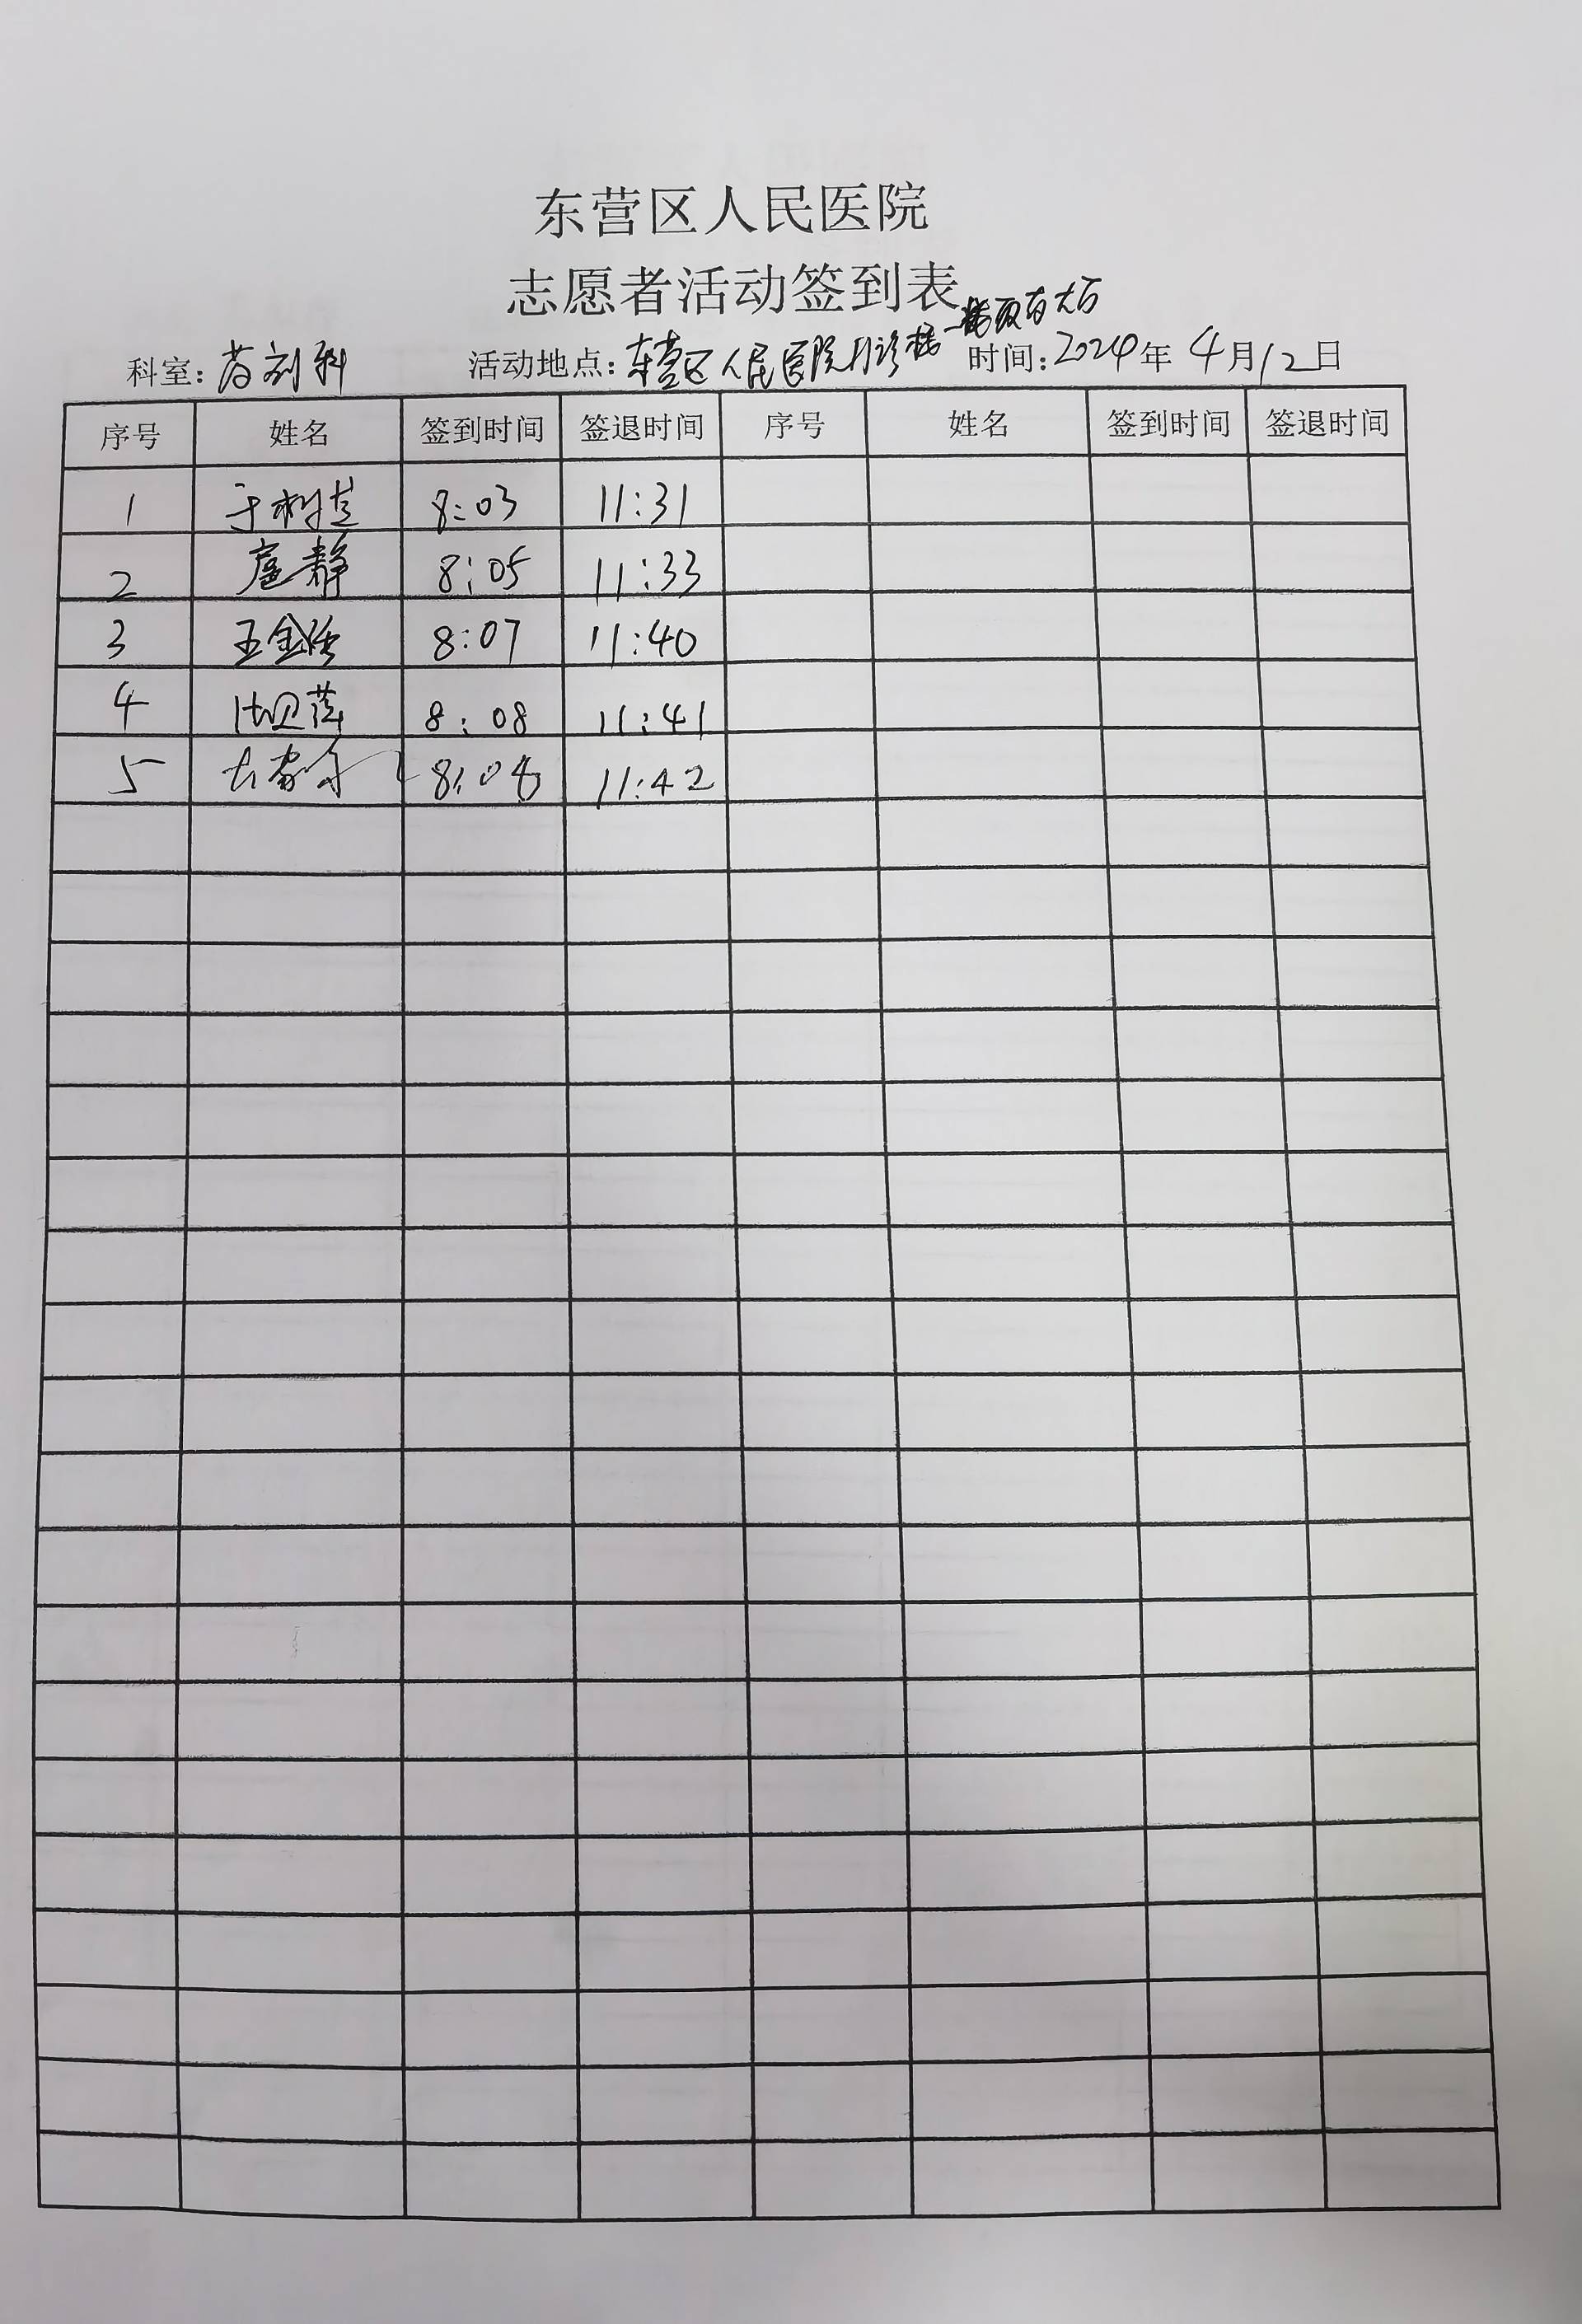 东营区人民医院
志愿者活动签到表
科室：药剂科 活动地点：东营区人民医院门诊楼一楼取药大厅 时间：2024年4月12日
序号 姓名 签到时间 签退时间 序号 姓名 签到时间 签退时间
1 8:03 11:31
2 扈静 8:05 11:33
3 8:07 11:40
4 8:08 11:41
5 11:42